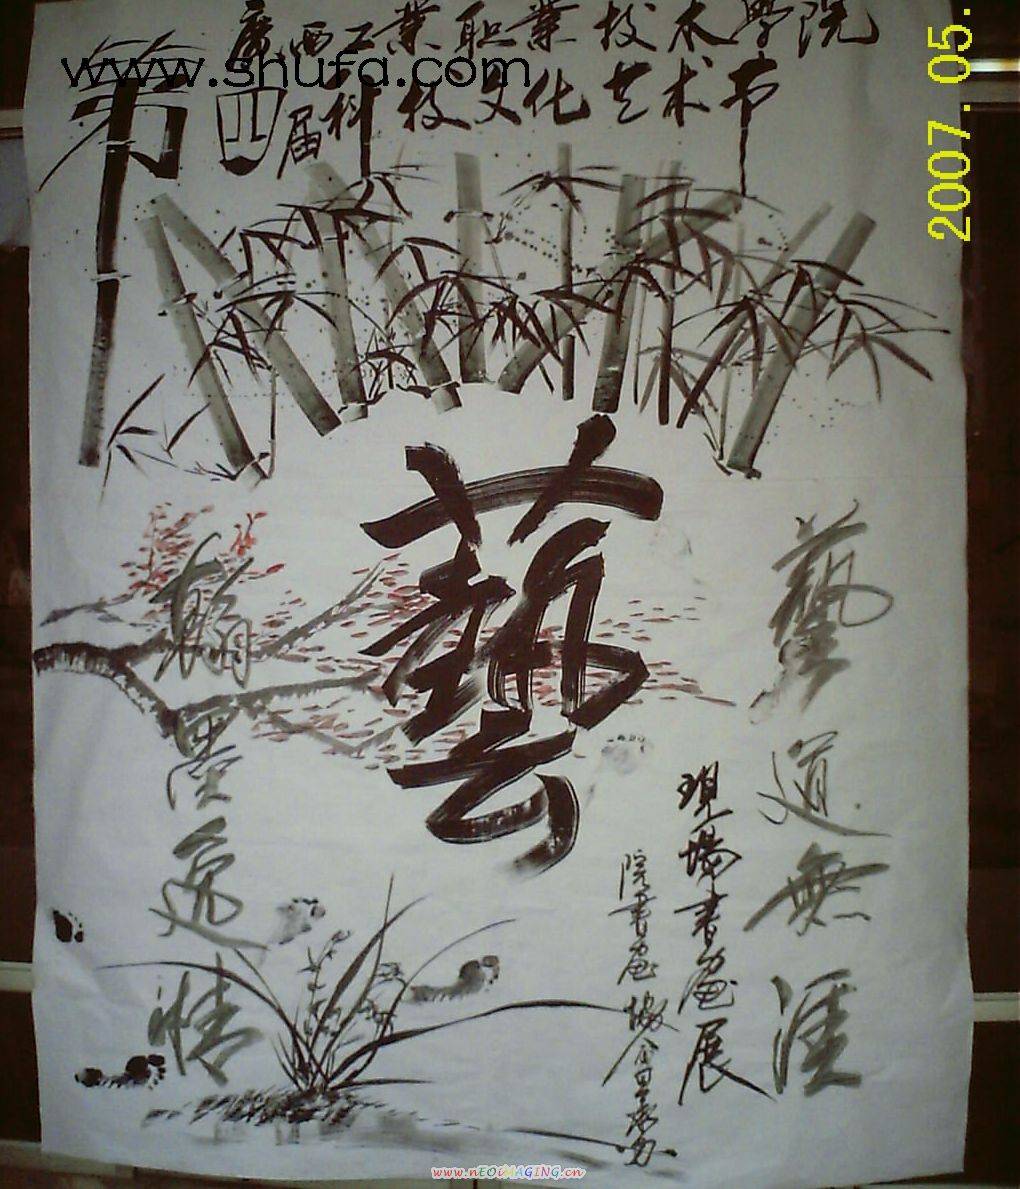 廣西工業职業技术學院
www.shufa.com
第四届科技文化艺术节
2007.05.
藝
藝道無涯
翰墨逸情
現場書画展
院書画協會承办
www.nEOiMAGING.cn